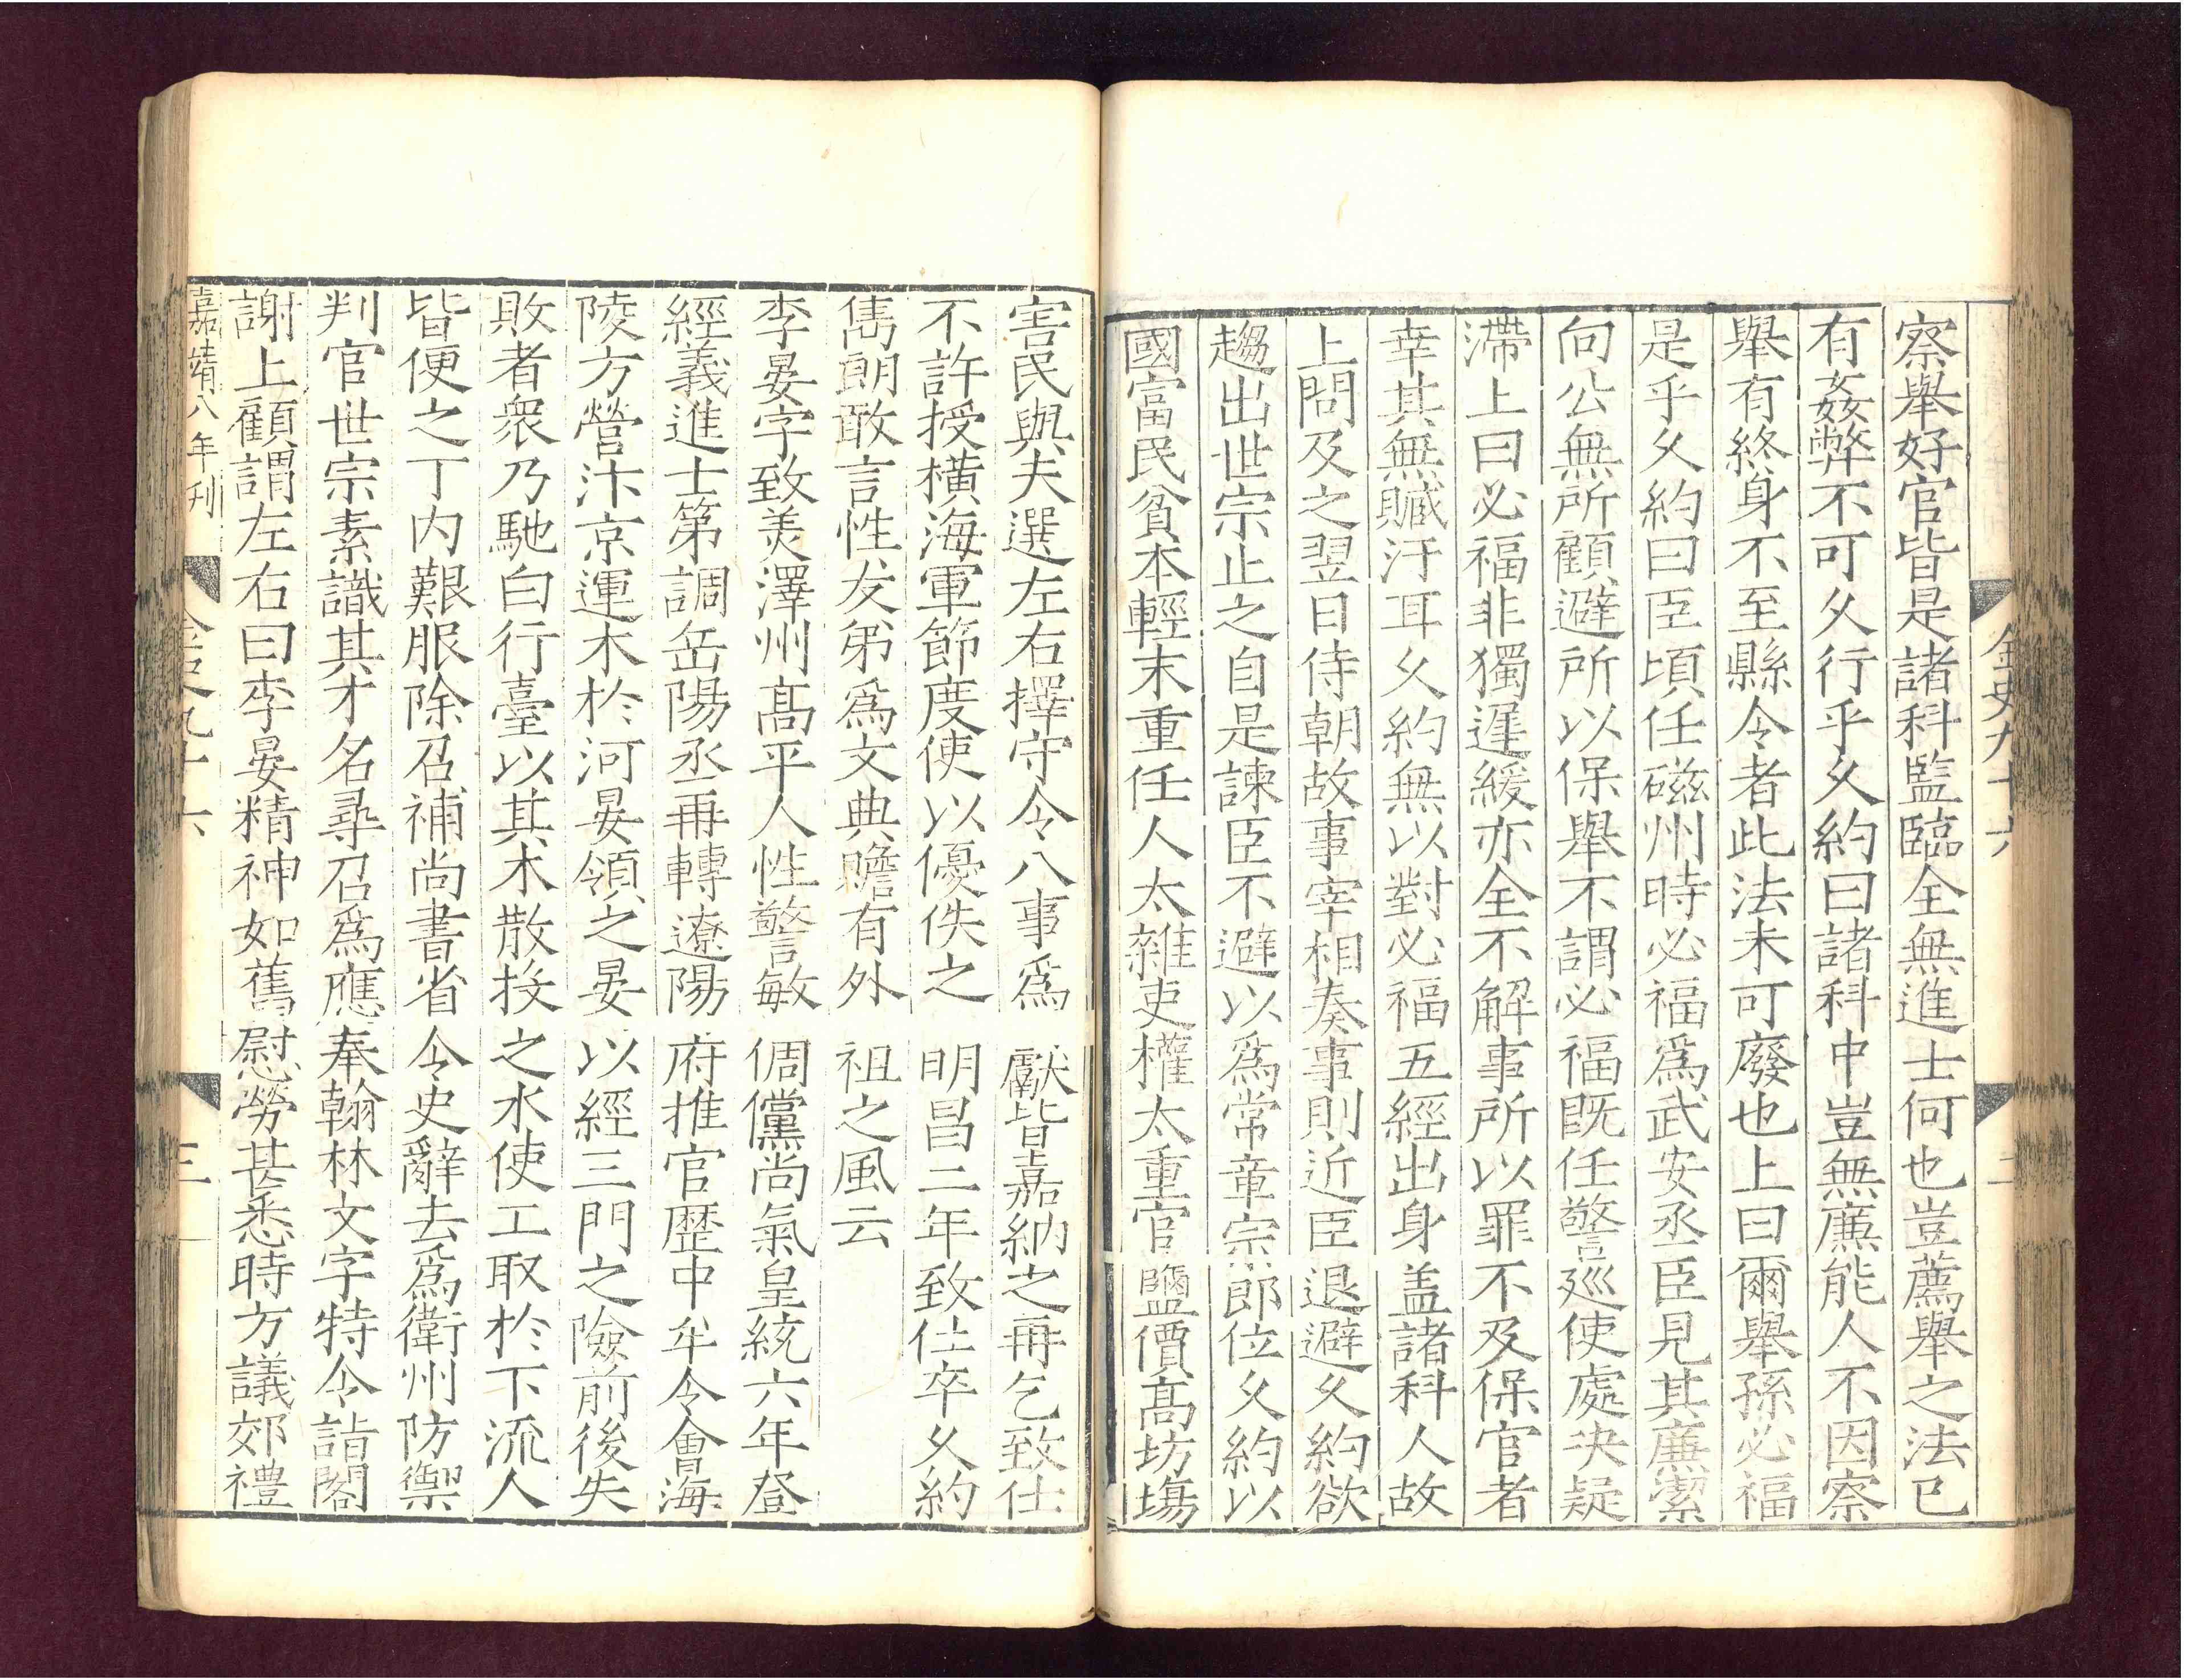 金史九十六
二
察舉好官皆是諸科監臨全無進士何也豈薦舉之法已
有姦弊不可久行乎久約曰諸科中豈無廉能人不因察
舉有終身不至縣令者此法未可廢也上曰爾舉孫必福
是乎久約曰臣頃任磁州時必福爲武安丞臣見其廉潔
向公無所顧避所以保舉不謂必福既任警廵使處决疑
滯上曰必福非獨遲緩亦全不解事所以罪不及保官者
幸其無贓汙耳久約無以對必福五經出身盖諸科人故
上問及之翌日侍朝故事宰相奏事則近臣退避久約欲
趨出世宗止之自是諫臣不避以爲常章宗郎位久約以
國富民貧本輕末重任人太雜吏權太重官鹽價高坊塲
害民與夫選左右擇守令八事爲獻皆嘉納之再乞致仕
不許授橫海軍節度使以優佚之明昌二年致仕卒久約
雋朗敢言性友弟爲文典贍有外祖之風云
李晏字致美澤州髙平人性警敏倜儻尚氣皇統六年登
經義進士第調岳陽丞再轉遼陽府推官歷中牟令會海
陵方營汴京運木於河晏領之晏以經三門之險前後失
敗者衆乃馳白行臺以其木散投之水使工取於下流人
皆便之丁内艱服除召補尚書省令史辭去爲衛州防禦
判官世宗素識其才名尋召爲應奉翰林文字特令詣閤
謝上顧謂左右曰李晏精神如舊慰勞甚悉時方議郊禮
嘉靖八年刊
金史九十六
三